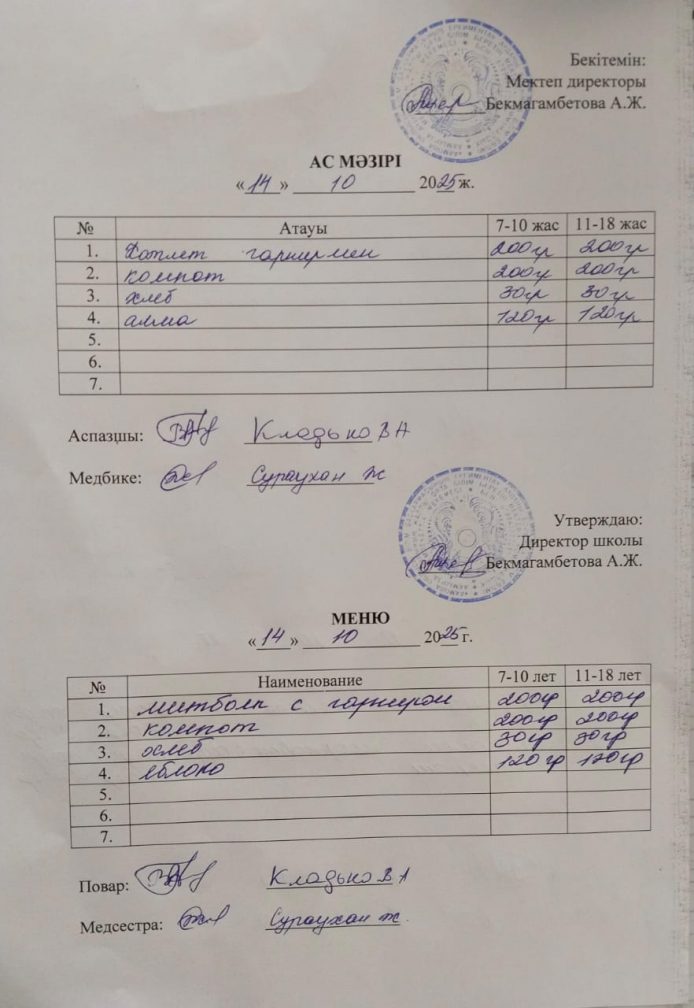 Бекітемін:
Мектеп директоры
Бекмагамбетова А.Ж.
АС МӘЗІРІ
«14» 10 2025 ж.
№ Атауы 7-10 жас 11-18 жас
1. Котлет гарнирмен 200гр 200гр
2. компот 200гр 200гр
3. хлеб 30гр 30гр
4. алма 120гр 120гр
5.
6.
7.
Аспазшы: Кладько В А
Медбике: Сураухан Ж
Утверждаю:
Директор школы
Бекмагамбетова А.Ж.
МЕНЮ
«14» 10 2025 г.
№ Наименование 7-10 лет 11-18 лет
1. митболы с гарниром 200гр 200гр
2. компот 200гр 200гр
3. хлеб 30гр 30гр
4. яблоко 120гр 120гр
5.
6.
7.
Повар: Кладько В А
Медсестра: Сураухан Ж.